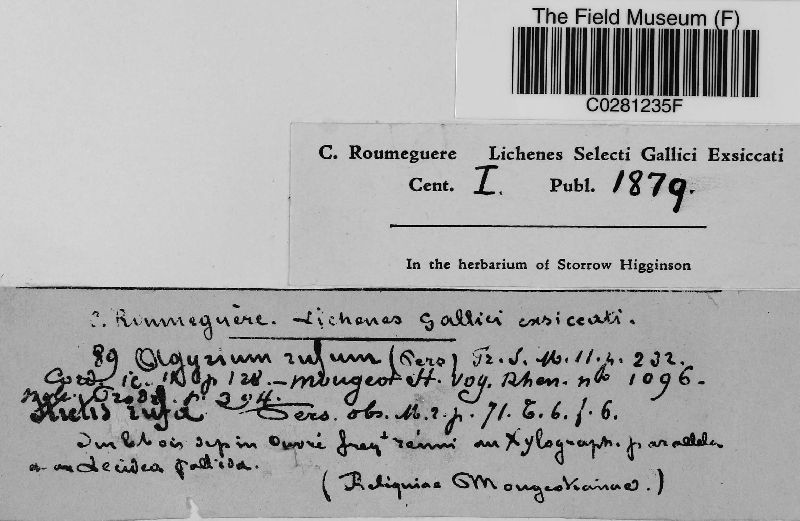 The Field Museum (F)
C0281235F
C. Roumeguere Lichenes Selecti Gallici Exsiccati
Cent. I. Publ. 1879.
In the herbarium of Storrow Higginson
C. Roumeguère. Lichenes Gallici exsiccati.
89 Olgyrium rufum (Pers) Fr. S. M. 11. p. 232.
Cord. ic. p 128. - Mougeot St. Vog. Rhen. no 1096.
p. 294.
Stictis rufa Pers. obs. M. 2. p. 71. T. 6. f. 6.
Sur le bois sapin ouvré freqt réuni au Xylograph. parallela
et au Lecidea pallida.
(Reliquiae Mougeotianae.)